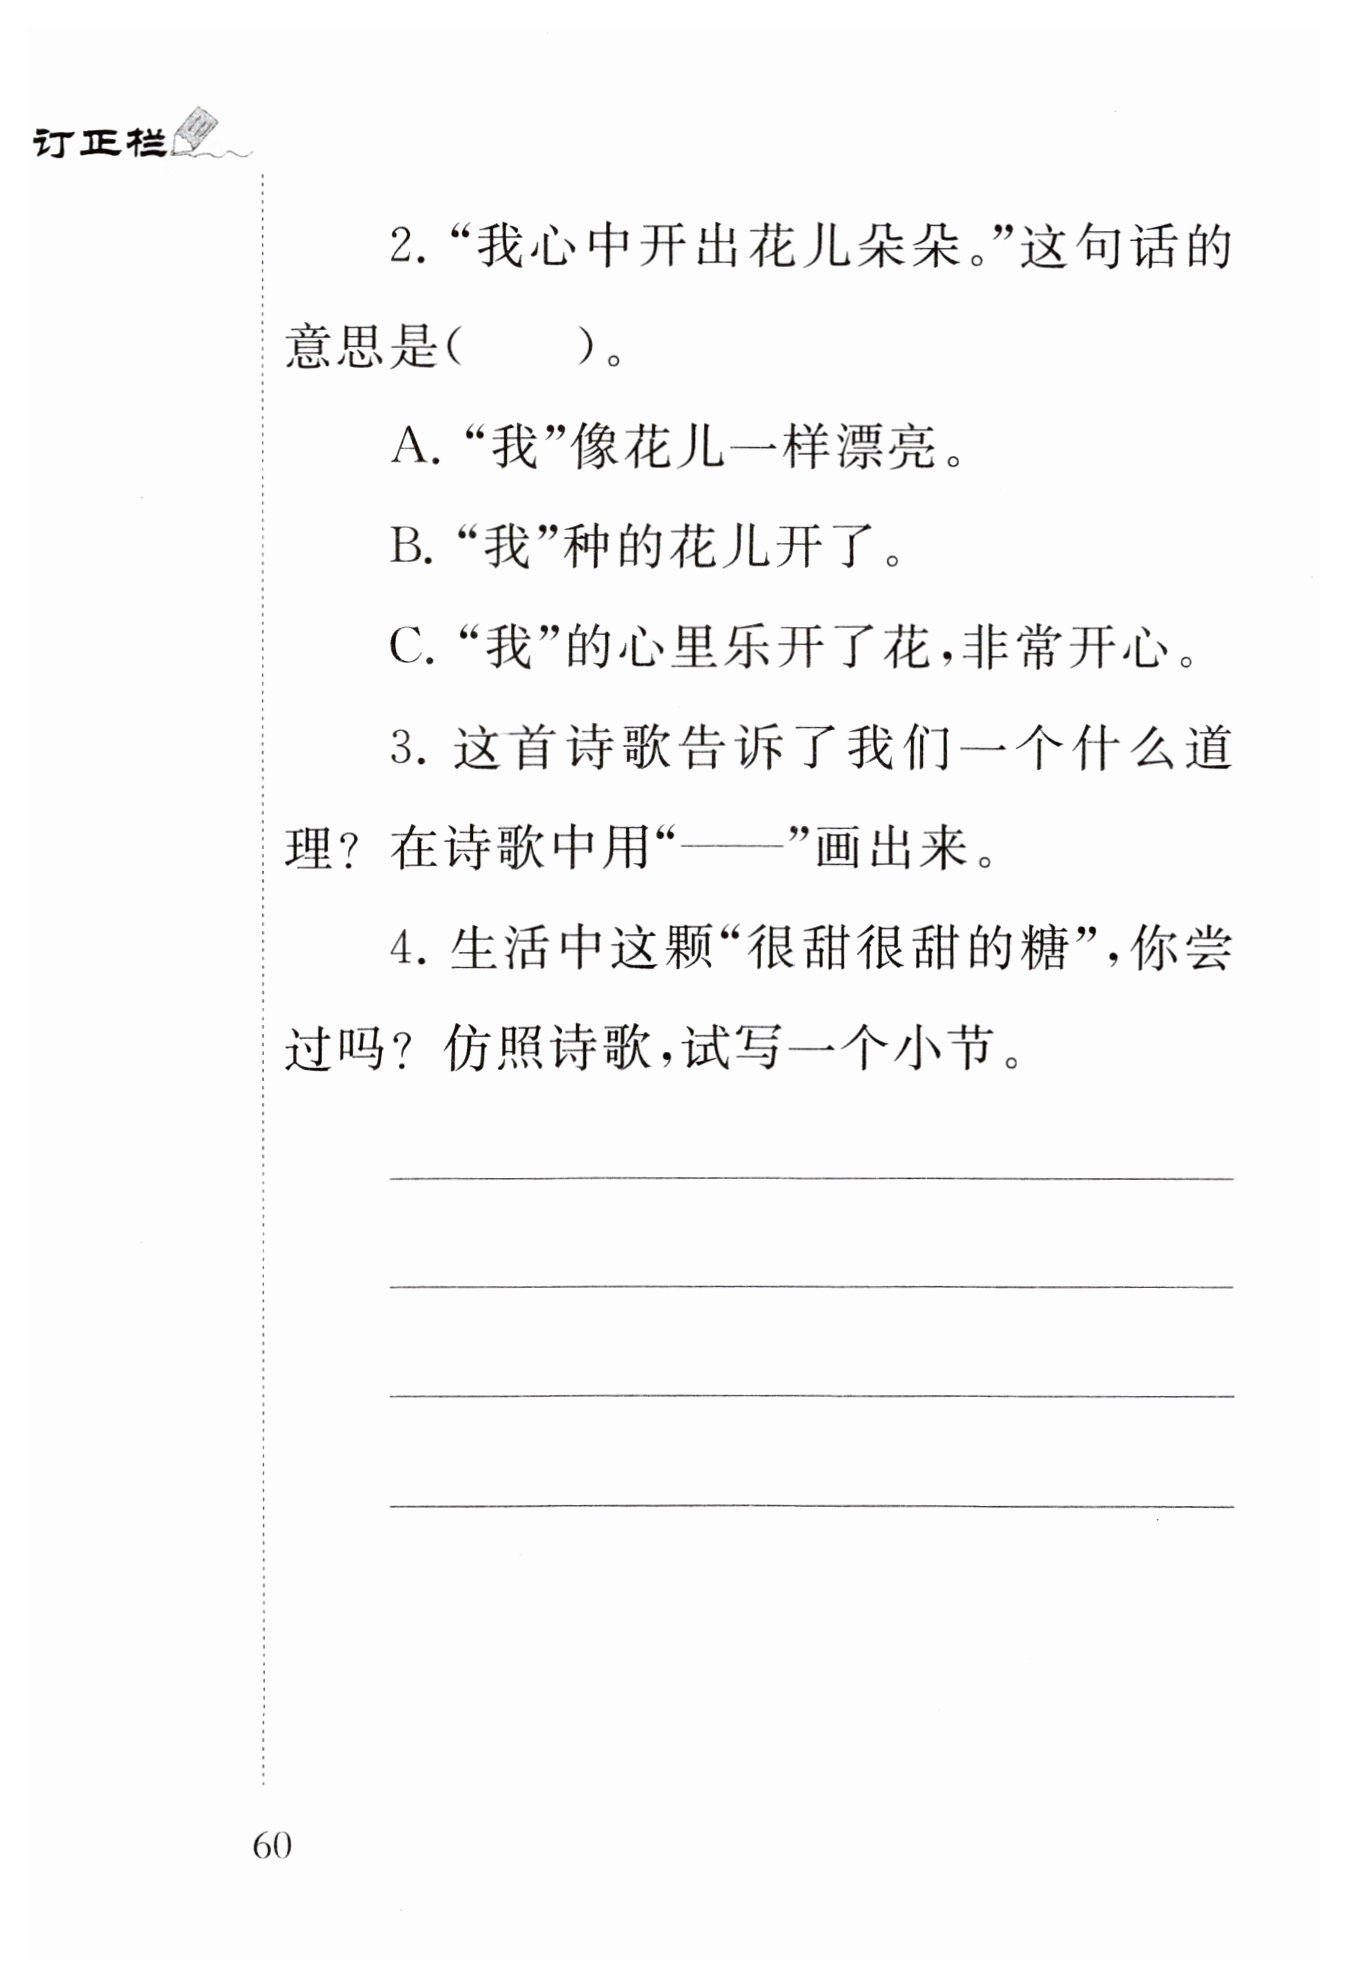 订正栏
2. “我心中开出花儿朵朵。”这句话的
意思是(　　)。
A. “我”像花儿一样漂亮。
B. “我”种的花儿开了。
C. “我”的心里乐开了花,非常开心。
3. 这首诗歌告诉了我们一个什么道
理? 在诗歌中用“——”画出来。
4. 生活中这颗“很甜很甜的糖”,你尝
过吗? 仿照诗歌,试写一个小节。
60